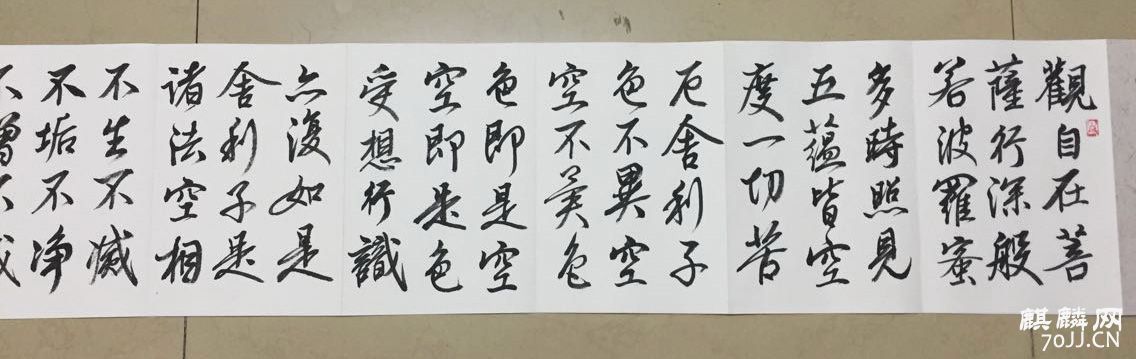 觀自在菩
薩行深般
若波羅蜜
多時照見
五蘊皆空
度一切苦
厄舍利子
色不異空
空不異色
色即是空
空即是色
受想行識
亦復如是
舍利子是
諸法空相
不生不滅
不垢不净
不增不
麒麟网
70JJ.CN